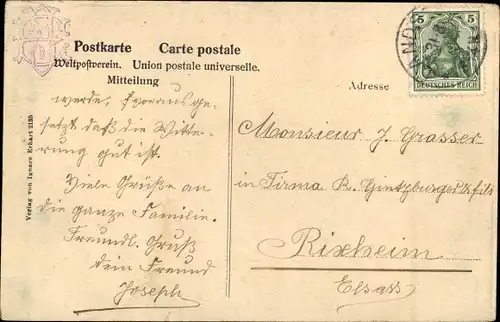 Postkarte Carte postale
Weltpostverein. Union postale universelle.
Mitteilung
Adresse
5 5
DEUTSCHES REICH
Verlag von Ignace Erhart 2135
werde, vorausge-
setzt daß die Witte-
rung gut ist.
Viele Grüße an
die ganze Familie.
Freundl. Gruß
dein Freund
Joseph
Monsieur J. Grasser
in Firma B. Gintzburger & fils
Rixheim
Elsass